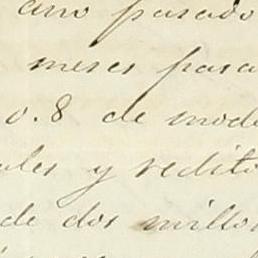 ano pasado
meses pasa
o. 8 de mode
ales y redito
de dos millo